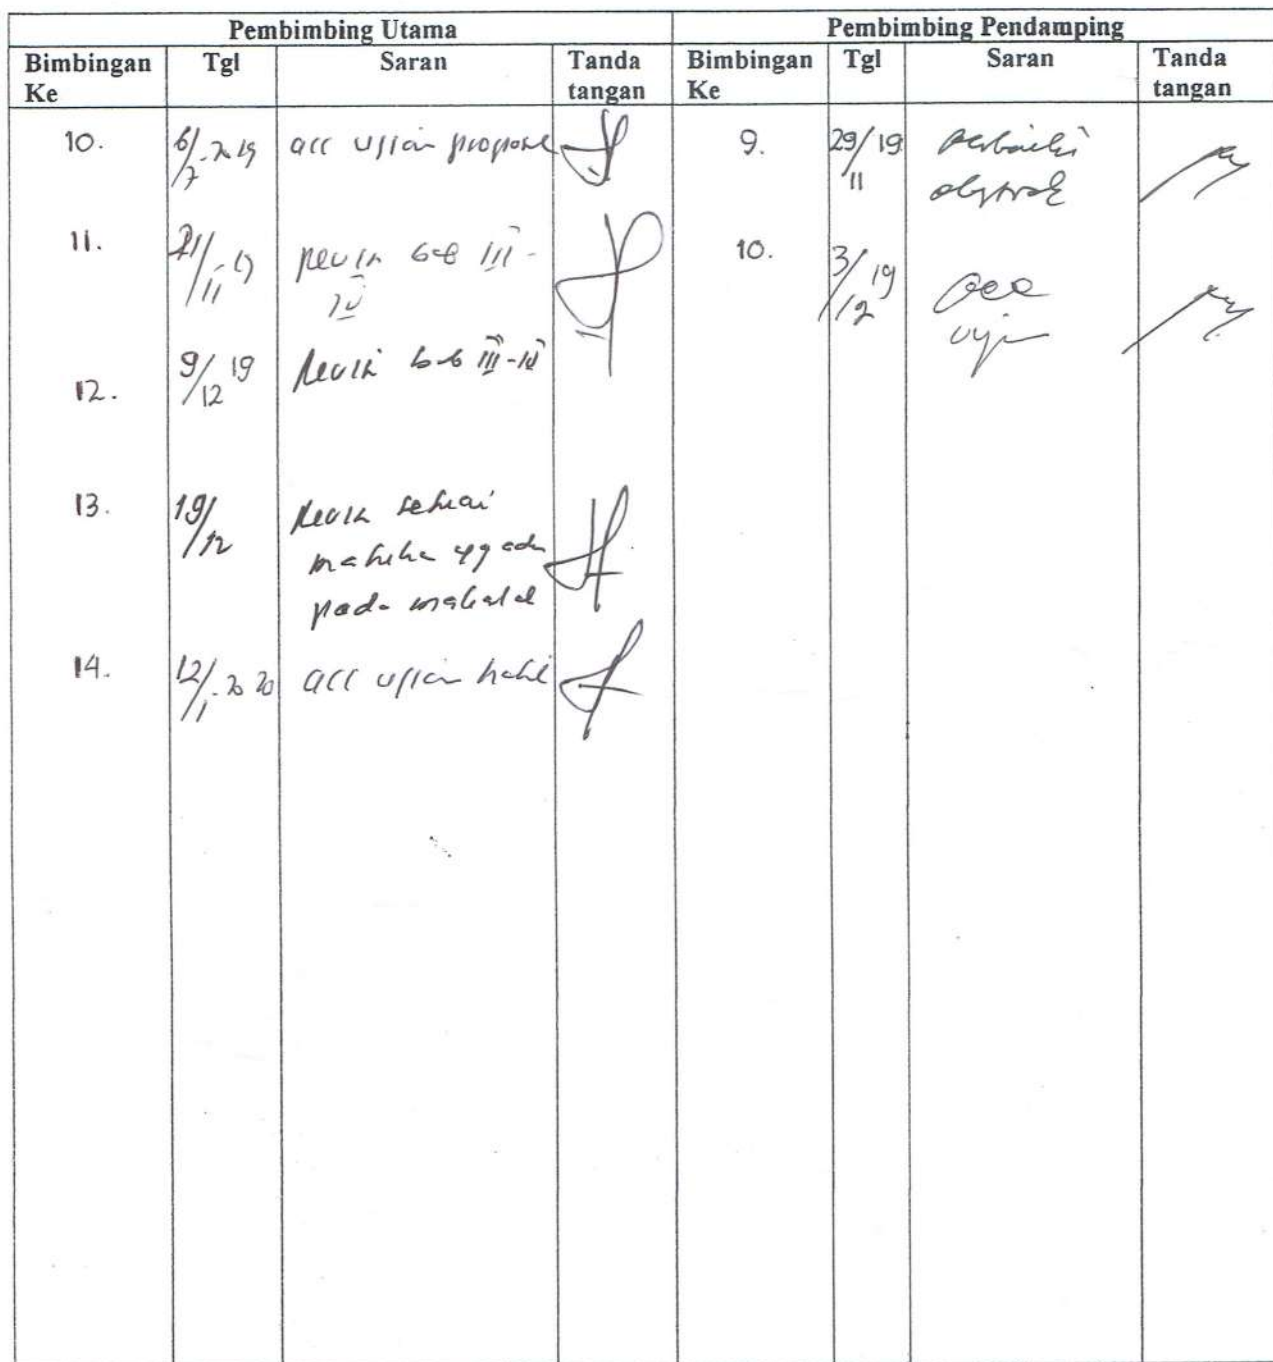 Pembimbing Utama Pembimbing Pendamping
Bimbingan Ke Tgl Saran Tanda tangan Bimbingan Ke Tgl Saran Tanda tangan
10. 6/7-2019 acc ujian proposal
9. 29/11 19 perbaiki
abstrak
11. 21/11-19 revisi bab III-
IV
10. 3/12 19 acc
ujian
12. 9/12 19 revisi bab III-IV
13. 19/12 revisi sesuai
yg ada
pada
14. 12/1-2020 acc ujian hasil